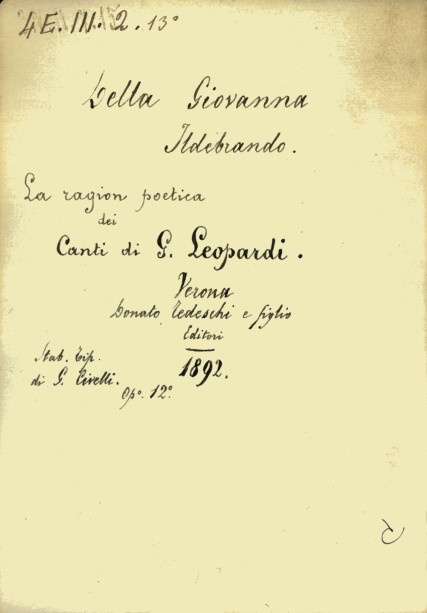 4 E. III. 2. 13°
Della Giovanna
Ildebrando.
La ragion poetica
dei
Canti di G. Leopardi.
Verona
Donato Tedeschi e figlio
Editori
1892.
Stab. Tip.
di G. Civelli.
Op°. 12°.